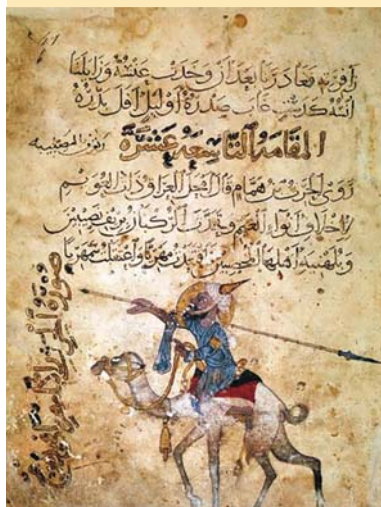 فغادرنا بعد ان وخدت عنسه وزايلنا
انسه كدست غاب صدره او ليل افل بدره
المقامة التاسعة عشرة
وتعرف النصيبيه
روى الحرث بن همام قال امحل العراق ذات العويم
لاخلاف انواء الغيم وتحدث الركبان بريف نصيبين
وبلهنية اهلها المخصبين فاقتعدت مهريا واعتقلت سمهريا
صورة الحرث